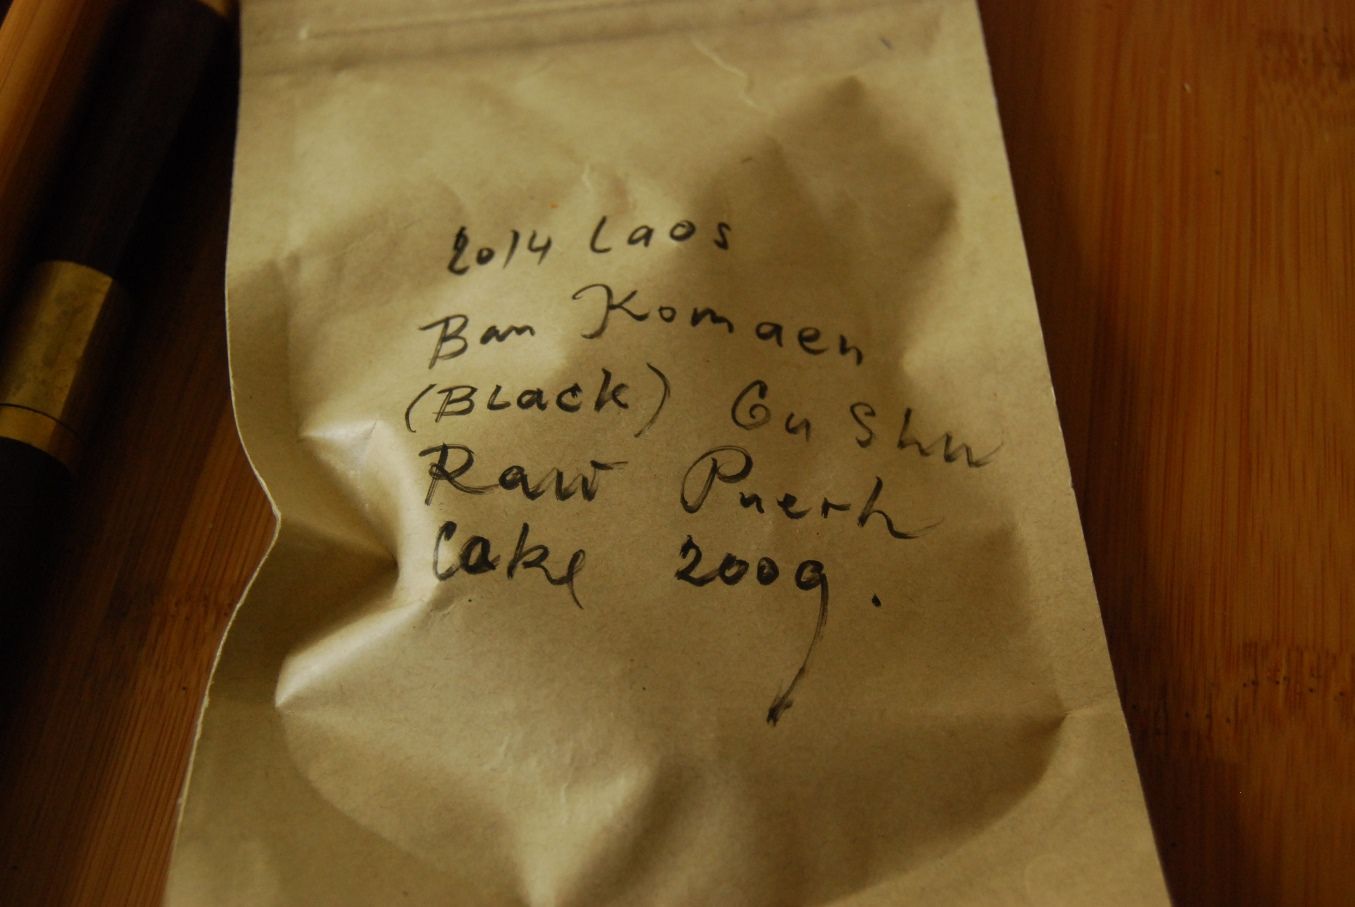 2014 Laos
Ban Komaen
(BLack) Gu Shu
Raw Puerh
Cake 200g.